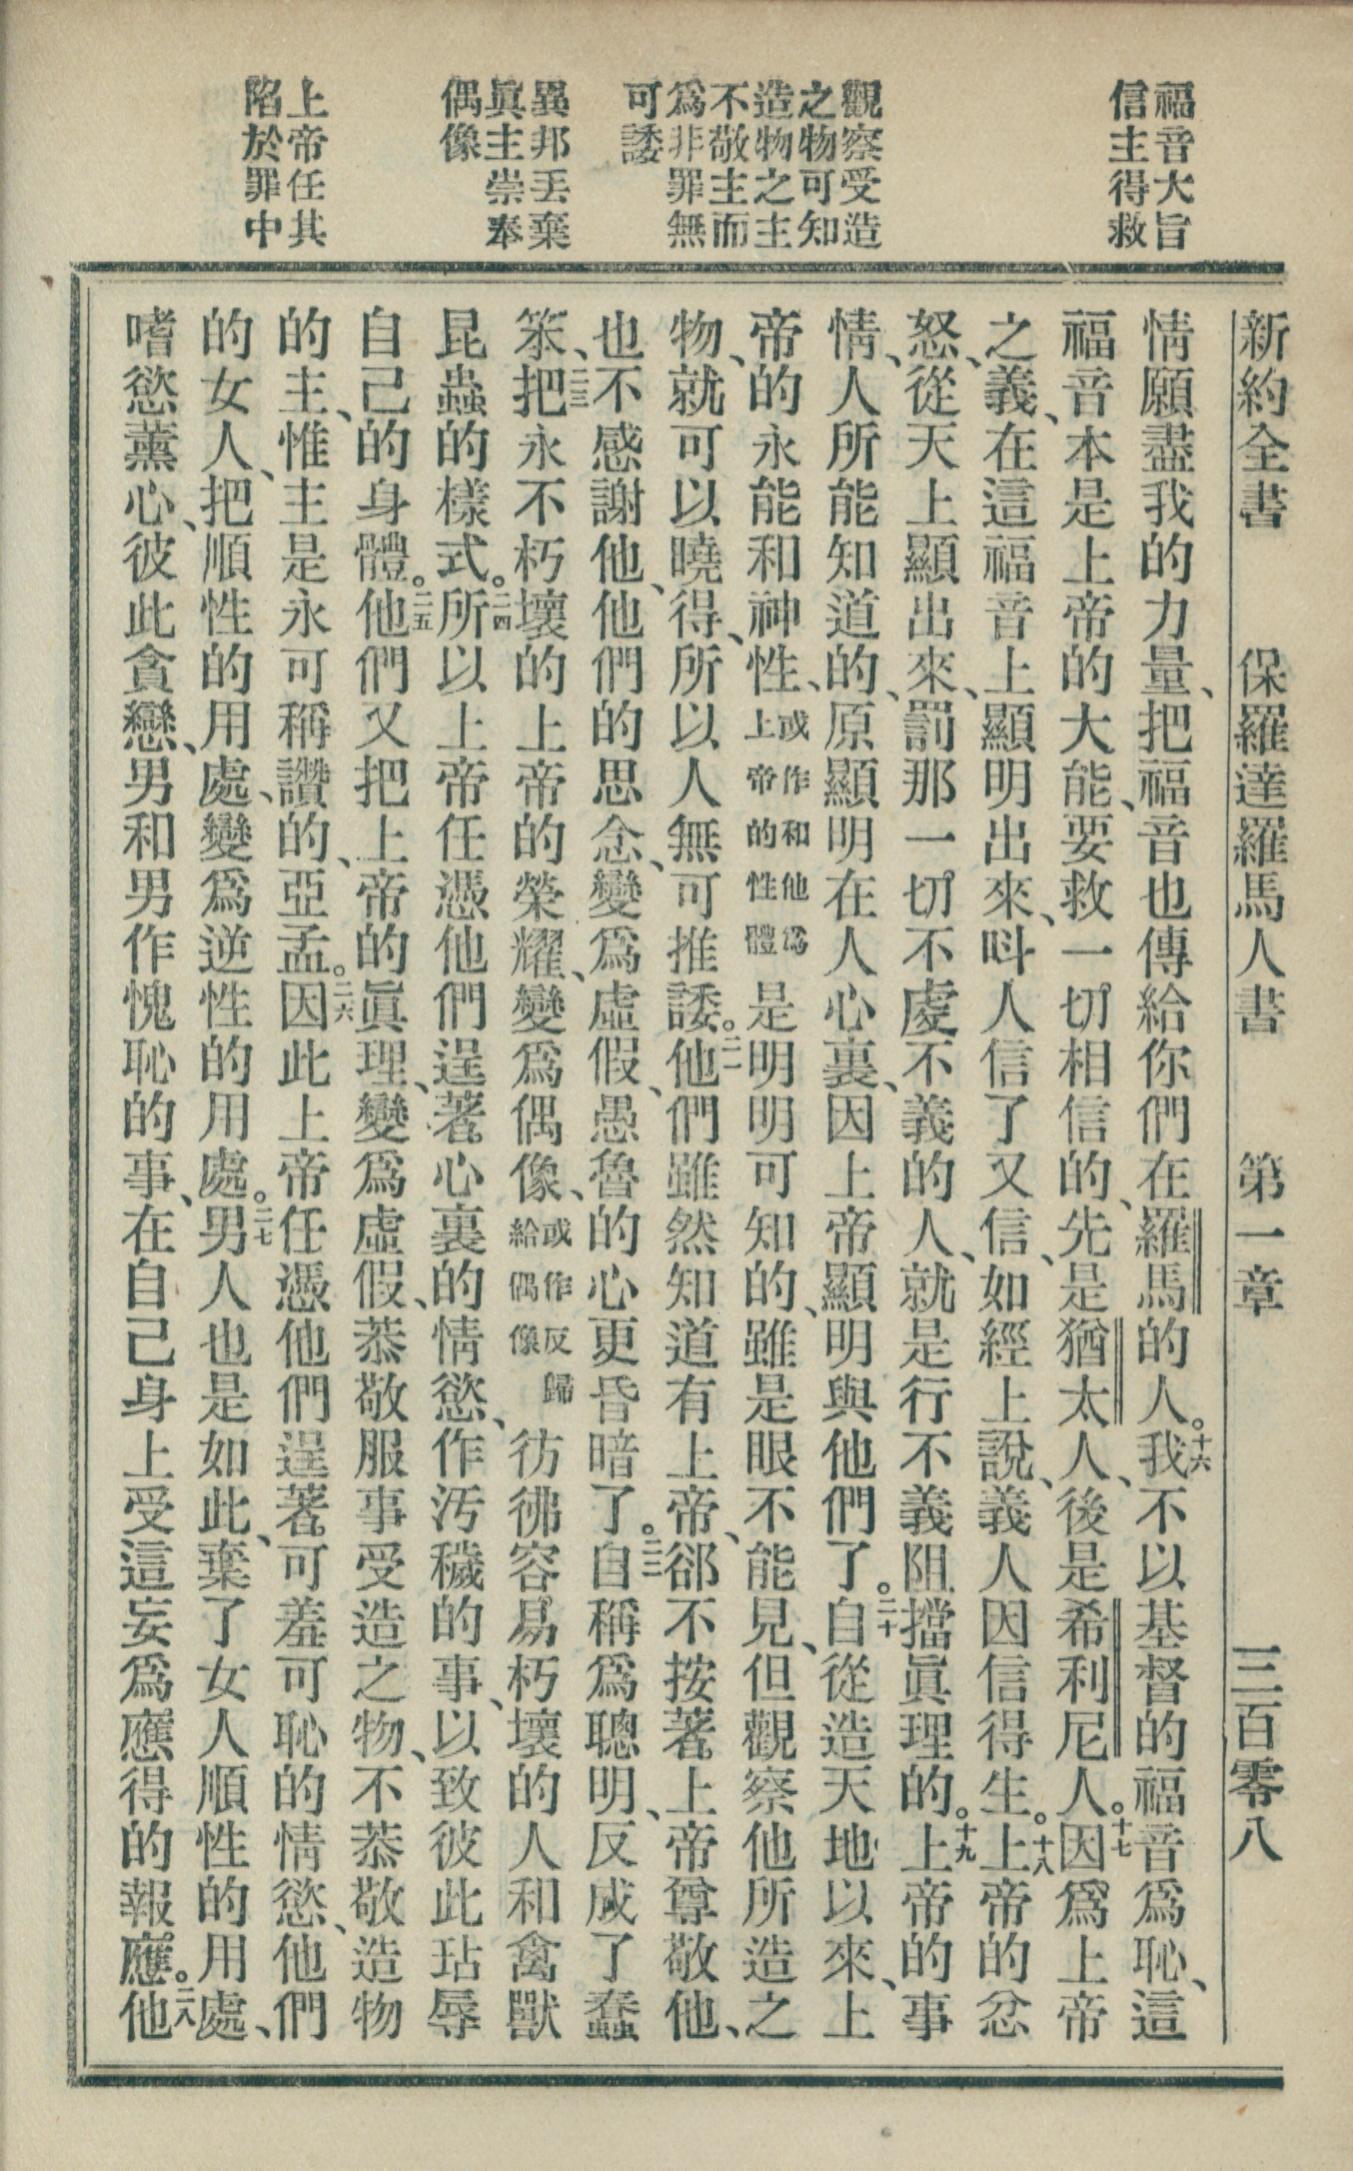 福音大旨
信主得救
觀察受造
之物可知
造物之主
不敬主而
爲非罪無
可諉
異邦丟棄
眞主崇奉
偶像
上帝任其
陷於罪中
新約全書 保羅達羅馬人書 第一章 三百零八
情願盡我的力量、把福音也傳給你們在羅馬的人。十六我不以基督的福音爲恥、這
福音本是上帝的大能、要救一切相信的、先是猶太人、後是希利尼人。十七因爲上帝
之義、在這福音上顯明出來、呌人信了又信、如經上說、義人因信得生。十八上帝的忿
怒、從天上顯出來、罰那一切不虔不義的人、就是行不義阻擋眞理的。十九上帝的事
情、人所能知道的、原顯明在人心裏、因上帝顯明與他們了。二十自從造天地以來、上
帝的永能和神性、或作和他爲上帝的性體是明明可知的、雖是眼不能見、但觀察他所造之
物、就可以曉得、所以人無可推諉。二一他們雖然知道有上帝、卻不按著上帝尊敬他、
也不感謝他、他們的思念、變爲虛假、愚魯的心更昏暗了。二二自稱爲聰明、反成了蠢
笨、二三把永不朽壞的上帝的榮耀、變爲偶像、或作反歸給偶像彷彿容易朽壞的人和禽獸
昆蟲的樣式。二四所以上帝任憑他們逞著心裏的情慾、作汚穢的事、以致彼此玷辱
自己的身體。二五他們又把上帝的眞理、變爲虛假、恭敬服事受造之物、不恭敬造物
的主、惟主是永可稱讚的、亞孟。二六因此上帝任憑他們逞著可羞可恥的情慾、他們
的女人、把順性的用處、變爲逆性的用處。二七男人也是如此、棄了女人順性的用處、
嗜慾薰心、彼此貪戀、男和男作愧恥的事、在自己身上受這妄爲應得的報應。二八他